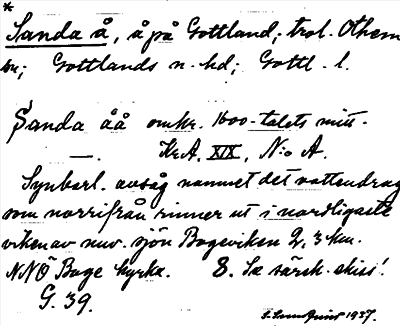 *
Sanda å, å på Gottland, trol. Othem
sn; Gottlands n. hd; Gottl. l.
Sanda åå omkr. 1600-talets mitt.
—. Kr.A. XIX, N:o A.
Synbarl. avsåg namnet det vattendrag
som norrifrån rinner ut i nordligaste
viken av nuv. sjön Bogeviken 2,3 km.
NNÖ Boge kyrka. 8. Se särsk. skiss!
G. 39.
1937.